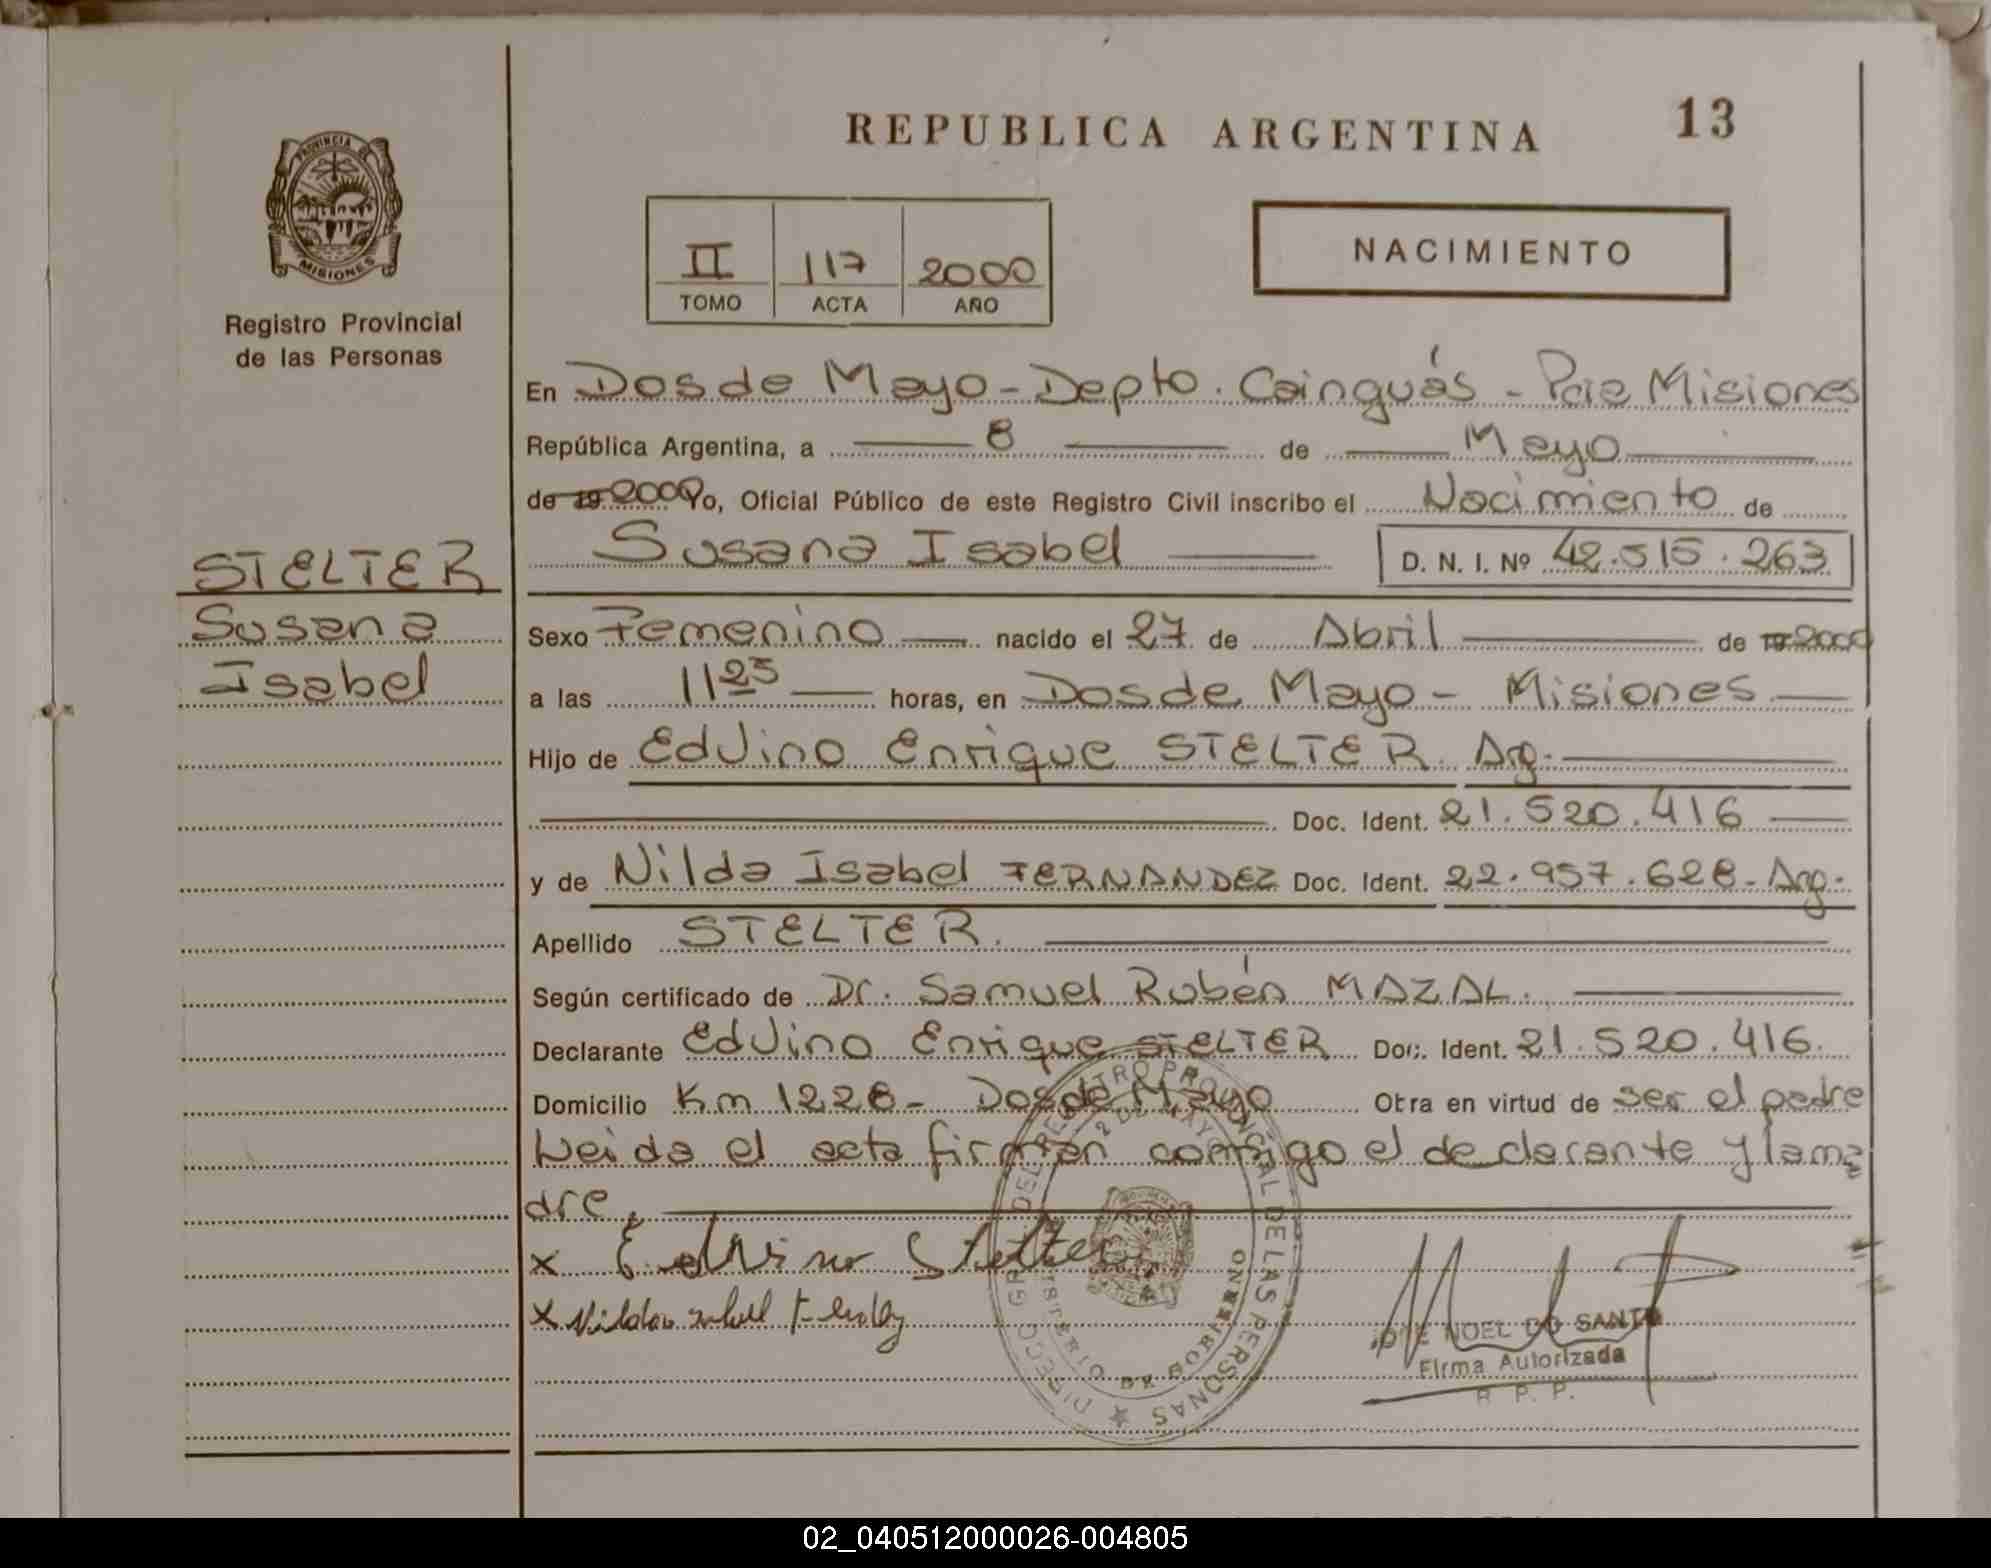 PROVINCIA DE
MISIONES
Registro Provincial
de las Personas
STELTER
Susana
Isabel
REPUBLICA ARGENTINA 13
II 117 2000
TOMO ACTA AÑO
NACIMIENTO
En Dos de Mayo - Depto. Cainguás - Pcia Misiones
República Argentina, a 8 de Mayo
de 19 2000 Yo, Oficial Público de este Registro Civil inscribo el Nacimiento de
Susana Isabel D. N. I. Nº 42.515.263
Sexo Femenino nacido el 27 de Abril de 19 2000
a las 11 25 horas, en Dos de Mayo - Misiones
Hijo de Edvino Enrique STELTER. Arg.
Doc. Ident. 21.520.416
y de Nilda Isabel FERNANDEZ Doc. Ident. 22.957.628 - Arg.
Apellido STELTER.
Según certificado de Dr. Samuel Rubén MAZAL.
Declarante Edvino Enrique STELTER Doc. Ident. 21.520.416.
Domicilio Km 1228 - Dos de Mayo Otra en virtud de ser el padre
Leida el acta firman conmigo el declarante y la ma
dre,
x Edvino Stelter
x Nilda
DIRECC. GRAL DEL REGISTRO PROVINCIAL DE LAS PERSONAS
2 DE MAYO
MINISTERIO DE GOBIERNO
NOEL DO SANTO
Firma Autorizada
R. P. P.
02_040512000026-004805